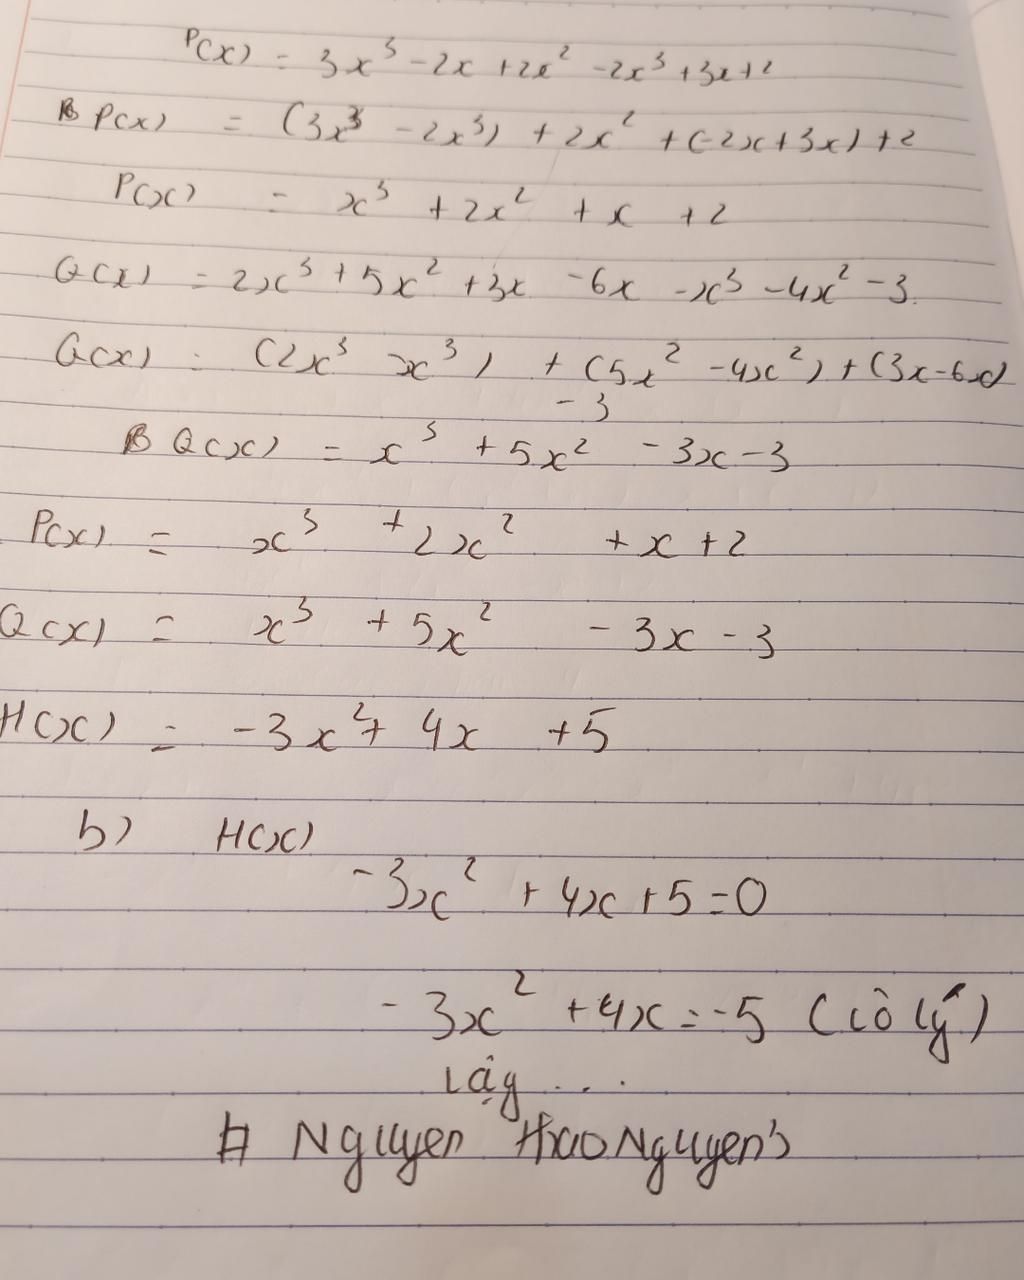 P(x) = 3x³ - 2x + 2x² - 2x³ + 3x + 2
P(x) = (3x³ - 2x³) + 2x² + (-2x + 3x) + 2
P(x) = x³ + 2x² + x + 2
Q(x) = 2x³ + 5x² + 3x - 6x - x³ - 4x² - 3
Q(x) = (2x³ x³) + (5x² - 4x²) + (3x - 6x)
- 3
Q(x) = x³ + 5x² - 3x - 3
P(x) = x³ + 2x² + x + 2
Q(x) = x³ + 5x² - 3x - 3
H(x) = -3x² + 4x + 5
b) H(x)
-3x² + 4x + 5 = 0
-3x² + 4x = -5 (vô lý)
vậy ...
# Nguyen ThaoNguyen's